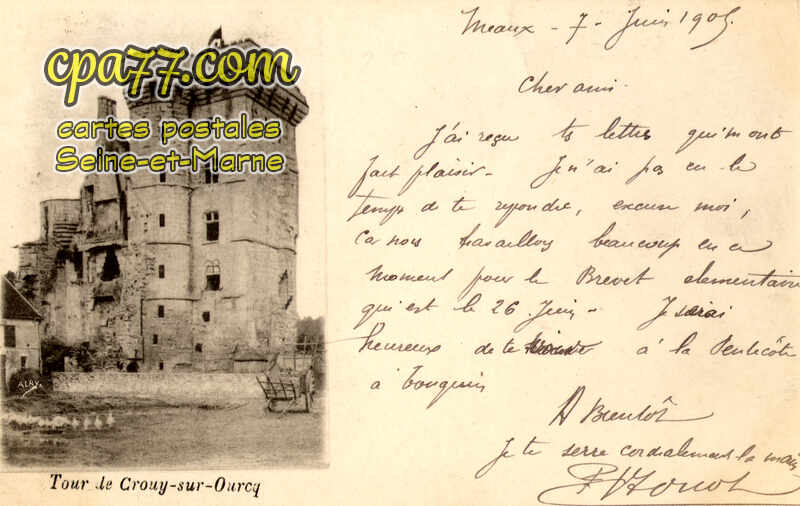 cpa77.com
cartes postales
Seine-et-Marne
Tour de Crouy-sur-Ourcq
Meaux - 7 - Juin 1905
Cher ami
J'ai reçu ts lettres qui m'ont
fait plaisir - Je n'ai pas eu le
temps de te repondre, excuse moi,
car nous travaillons beaucoup en ce
moment pour le Brevet elementaire
qui est le 26 Juin - Je serai
heureux de te à la Pentecôte
à
A Bientôt
Je te serre cordialement la main